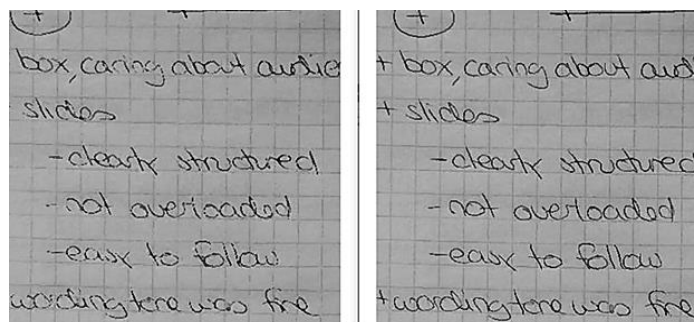 +
box, caring about audie
slides
-clearly structured
-not overloaded
-easy to follow
wording tone was fine
+
+ box, caring about aud
+ slides
-clearly structured
-not overloaded
-easy to follow
+wording tone was fine